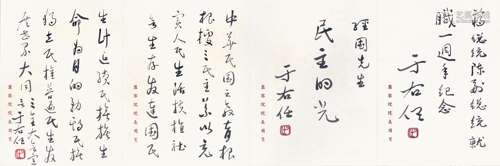 蔣總統陳副總統就
職一週年紀念
于右任
經國先生
民主的光
于右任
中華民國之教育
根據三民主義以充
實人民生活扶植社
會生存發達國民
生計延續民族生
命為目的務期民族
獨立民權普遍民生發
世界大同
于右任